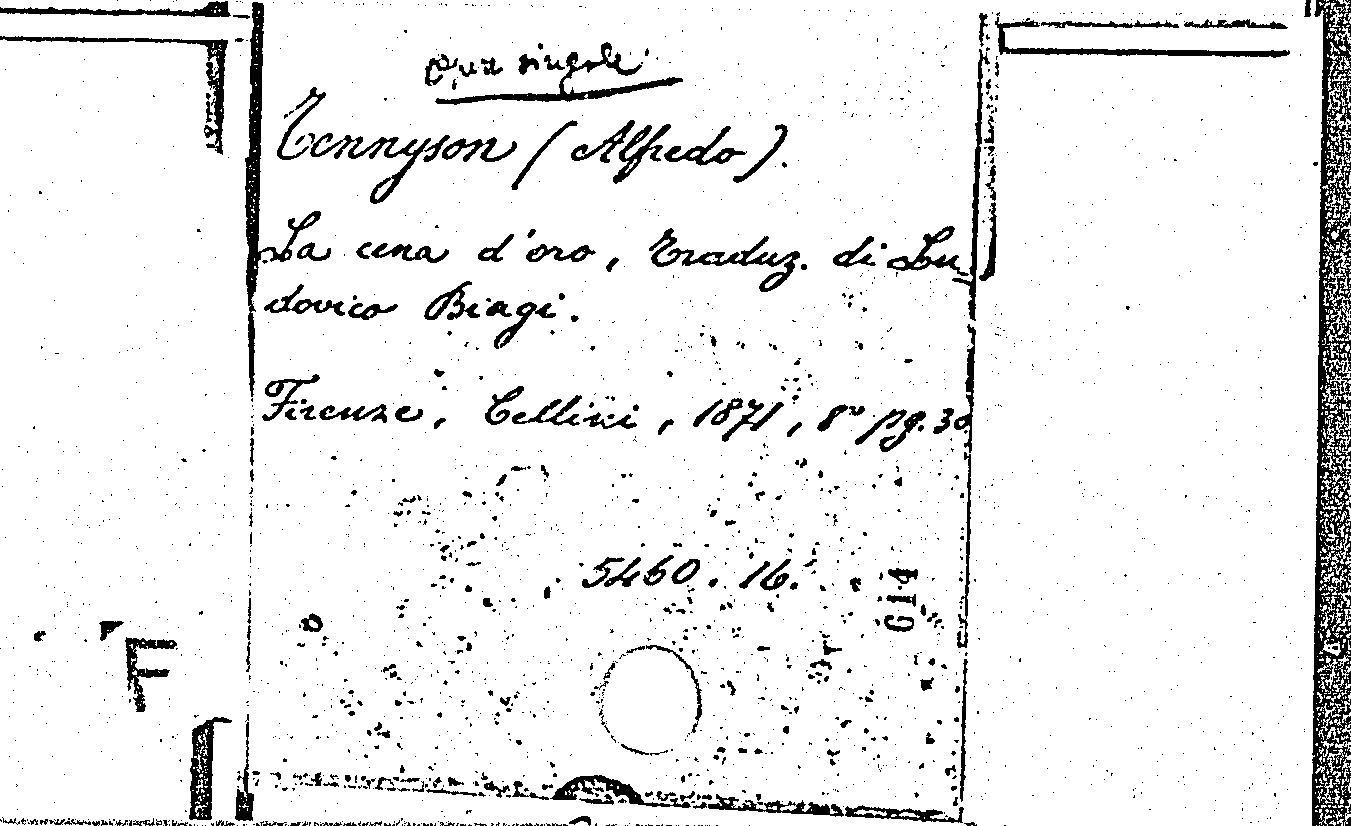 Opere singole
Tennyson (Alfredo).
La cena d'oro, Traduz. di Lu-
dovico Biagi.
Firenze, Cellini, 1871, 8° pg. 30
5460. 16.
614